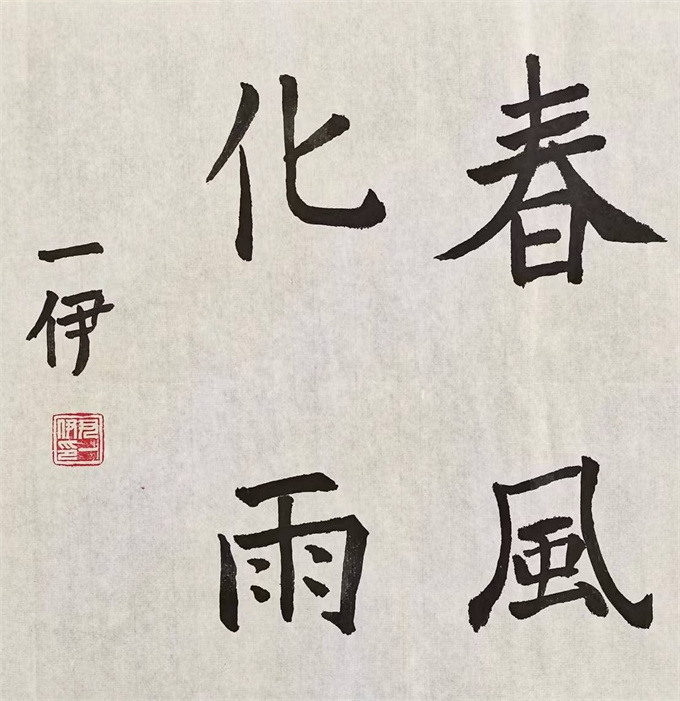 春風
化雨
一伊